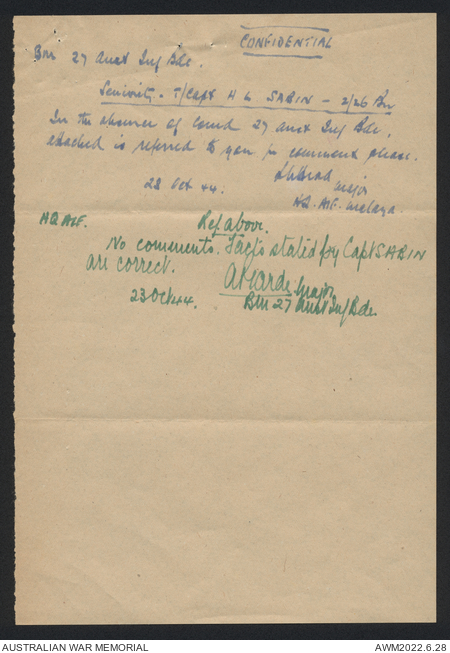 CONFIDENTIAL
Bm 27 Aust Inf Bde.
Seniority - T/Capt H L SABIN - 2/26 Bn
In the absence of Comd 27 Aust Inf Bde,
attached is referred to you for comment please.
Major
28 Oct 44.
HQ. AIF. Malaya.
HQ AIF.
Ref above.
No comments. Facts stated by Capt SABIN
are correct.
Major
23 Oct 44.
Bm 27 Aust Inf Bde.
AUSTRALIAN WAR MEMORIAL
AWM2022.6.28